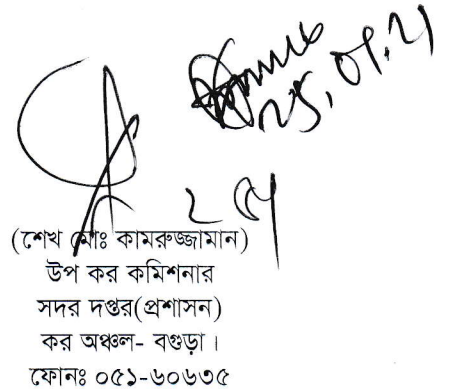 ২৫.০৭.২১
(শেখ মোঃ কামরুজ্জামান)
উপ কর কমিশনার
সদর দপ্তর(প্রশাসন)
কর অঞ্চল- বগুড়া।
ফোনঃ ০৫১-৬০৬৩৫